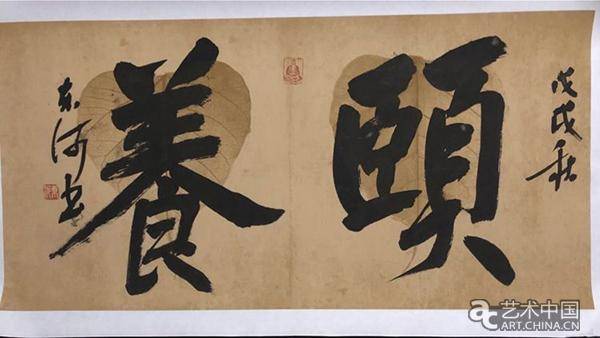 戊戌秋
頤養
东河书
艺术中国
ART.CHINA.CN